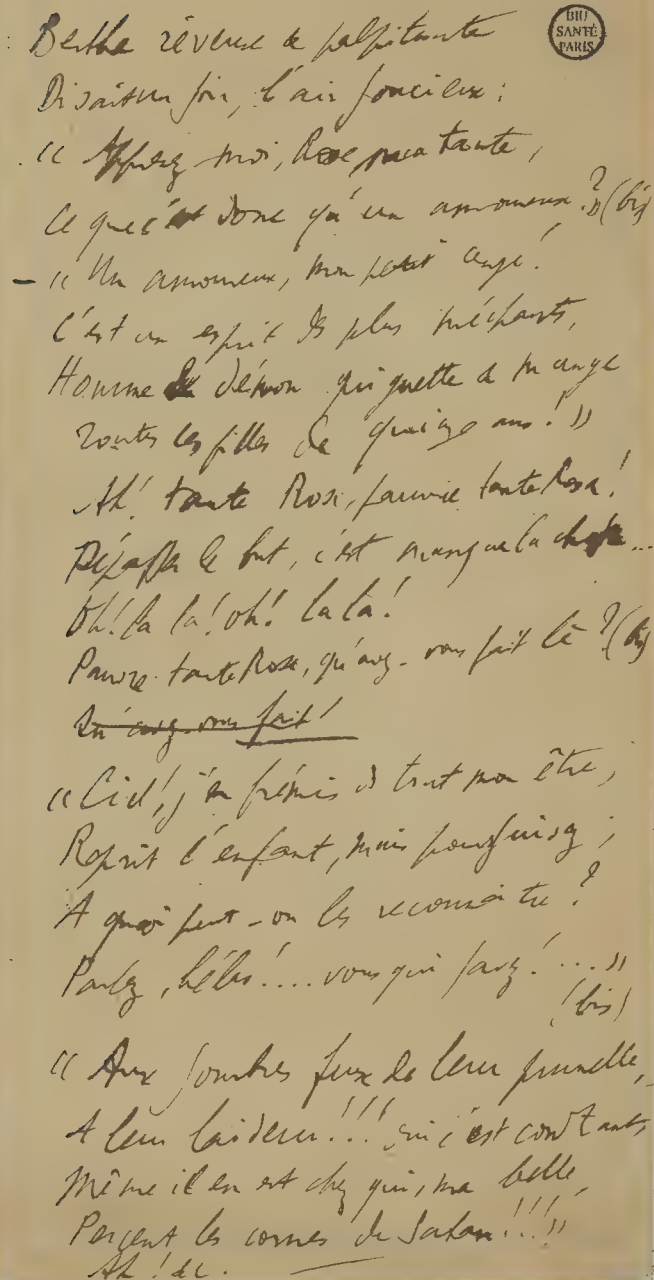 BIU
SANTÉ
PARIS
Berthe rêveuse & palpitante
Disait un soir, l'air soucieux :
« Apprenez moi, Rose ma tante,
Ce que c'est donc qu'un amoureux ? » (bis)
– « Un amoureux, mon petit ange !
C'est un esprit des plus méchants,
Homme démon qui guette & mange
Toutes les filles de quinze ans ! »
Ah ! tante Rose, pauvre tante Rose !
Dépasser le but, c'est manquer la chose ...
Oh ! la la ! oh ! la la !
Pauvre tante Rose, qu'avez-vous fait là ? (bis)
Qu'avez-vous fait !
« Ciel ! j'en frémis de tout mon être,
Reprit l'enfant, mais poursuivez ;
A quoi peut-on les reconnaître ?
Parlez, hélas ! .... vous qui savez ! .... »
(bis)
« Aux sombres feux de leur prunelle,
A leur laideur !!! oui c'est constant
Même il en est chez qui, ma belle,
Percent les cornes de Satan !!! »
Ah ! &c.